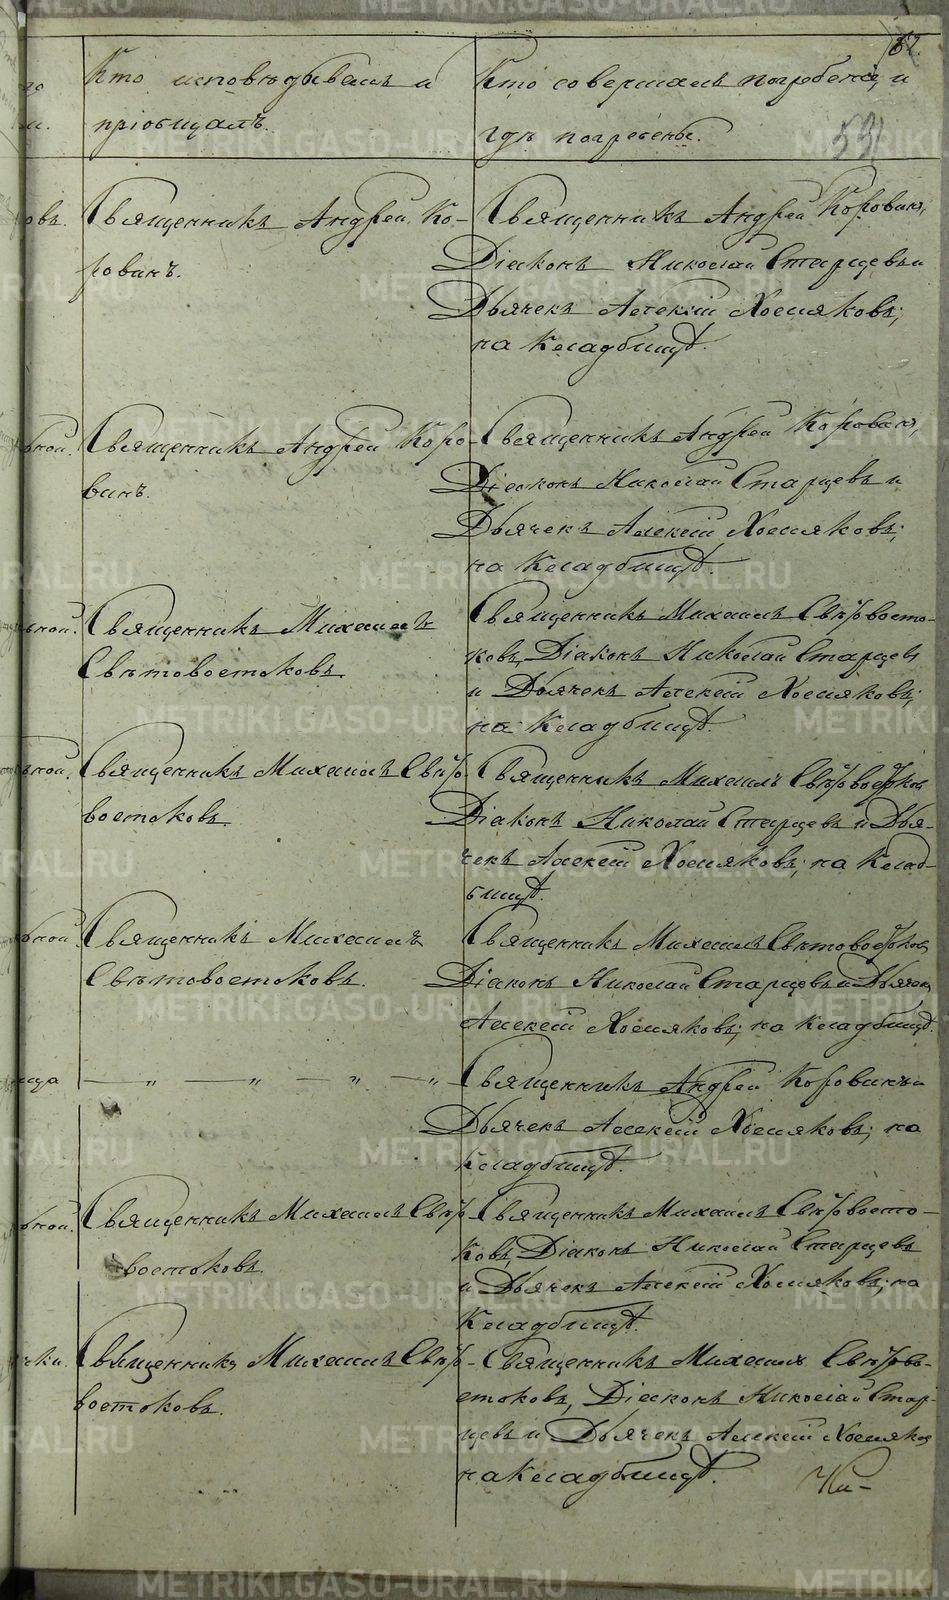 Кто исповѣдывалъ и
пріобщалъ.
Кто совершалъ погребеніе, и
гдѣ погребены.
Священникъ Андрей Ко-
ровинъ.
Священникъ Андрей Коровинъ,
Діаконъ Николай Старцевъ и
Дьячекъ Алексій Хомяковъ;
на Кладбищѣ.
Священникъ Андрей Коро-
винъ.
Священникъ Андрей Коровинъ,
Діаконъ Николай Старцевъ и
Дьячекъ Алексій Хомяковъ;
на Кладбищѣ.
Священникъ Михаилъ
Свѣтовостоковъ.
Священникъ Михаилъ Свѣтовосто-
ковъ, Діаконъ Николай Старцевъ
и Дьячекъ Алексій Хомяковъ;
на Кладбищѣ.
Священникъ Михаилъ Свѣто-
востоковъ.
Священникъ Михаилъ Свѣтовостоковъ
Діаконъ Николай Старцевъ и Дья-
чекъ Алексій Хомяковъ; на Клад-
бищѣ.
Священникъ Михаилъ
Свѣтовостоковъ.
Священникъ Михаилъ Свѣтовостоковъ
Діаконъ Николай Старцевъ и Дьячекъ
Алексій Хомяковъ; на Кладбищѣ.
— „ — „ — „ — „
Священникъ Андрей Коровинъ и
Дьячекъ Алексій Хомяковъ; на
Кладбищѣ.
Священникъ Михаилъ Свѣто-
востоковъ.
Священникъ Михаилъ Свѣтовосто-
ковъ, Діаконъ Николай Старцевъ
и Дьячекъ Алексій Хомяковъ; на
Кладбищѣ.
Священникъ Михаилъ Свѣто-
востоковъ.
Священникъ Михаилъ Свѣтово-
стоковъ, Діаконъ Николай Стар-
цевъ и Дьячекъ Алексій Хомяковъ
на Кладбищѣ.
METRIKI.GASO-URAL.RU